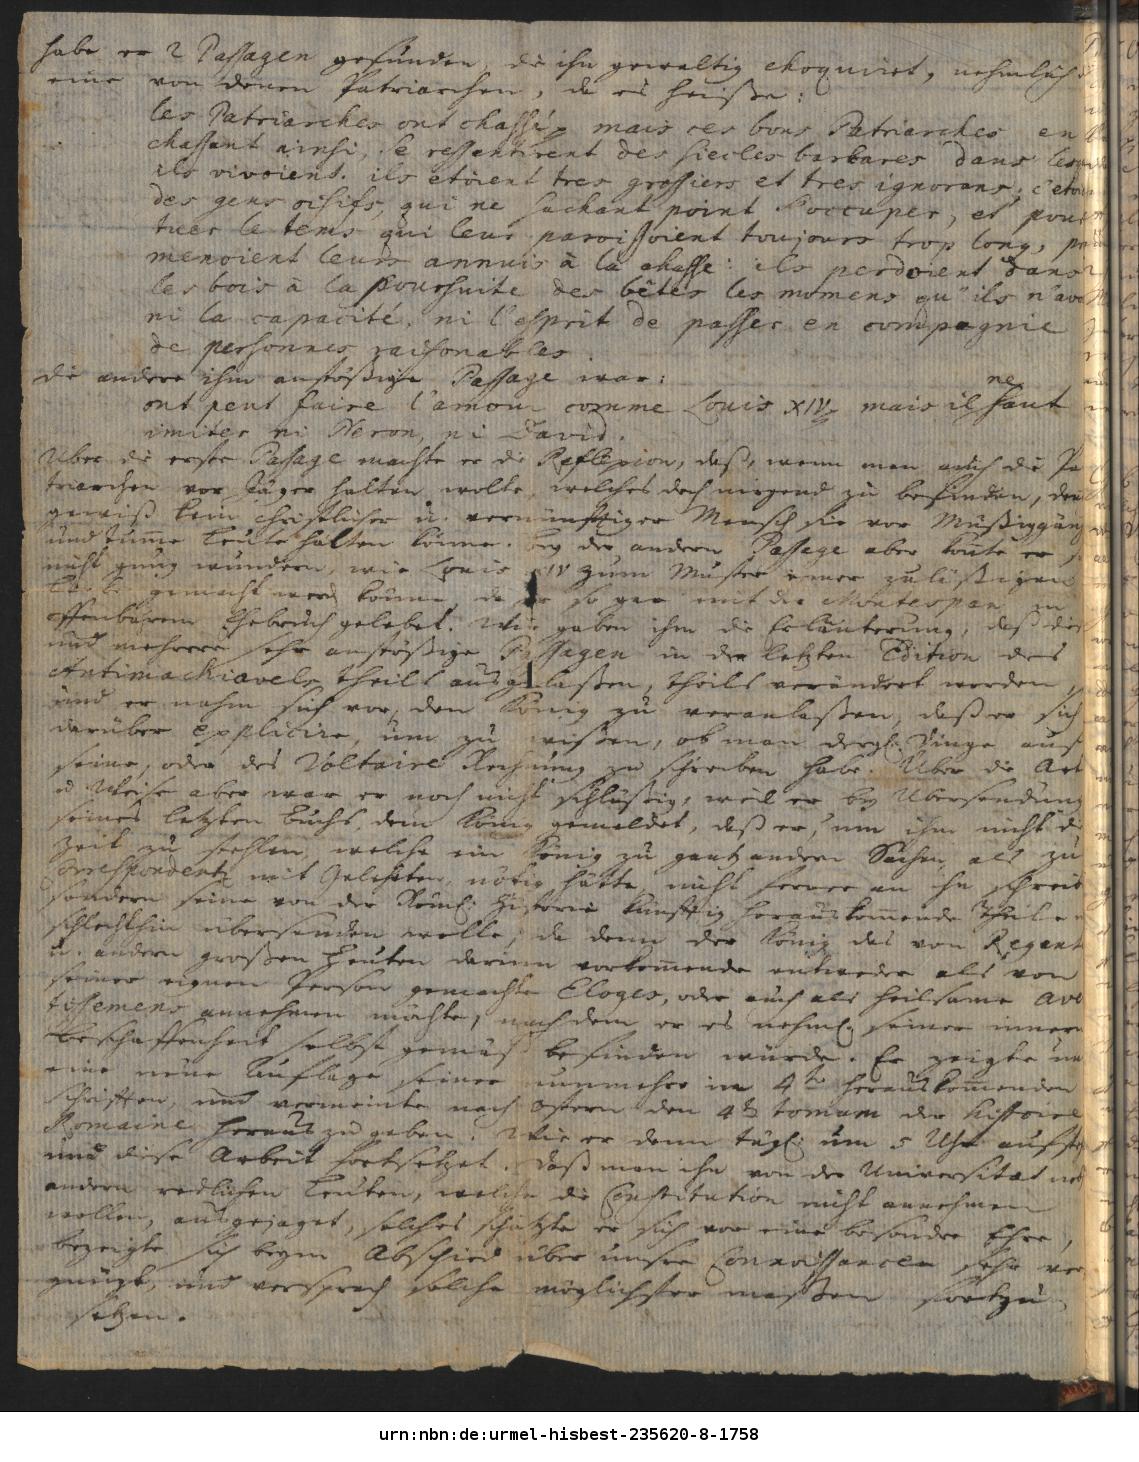 habe er 2 Passagen gefunden, die ihn gewaltig choquiret, nehmlich
eine von denen Patriarchen, da es heiße:
les Patriarches ont chassé, mais ces bons Patriarches en
chassant ainsi, se ressentirent des siecles barbares dans les
ils vivoient. ils etoient tres grossiers et tres ignorans, c'eto
des gens oisifs, qui ne sachant point s'occuper, et pour
tuer le tems qui leur paroissoient toujours trop long, pr
menoient leurs annuis à la chasse: ils perdoient dans
les bois à la poursuite des bêtes les momens qu'ils n'avo
ni la capacité, ni l'esprit de passer en compagnie
de personnes raisonables.
die andere ihm anstößige Passage war:
ont peut faire l'amour comme Louis XIV, mais il ne faut
imiter ni Neron, ni David.
Uber die erste Passage machte er die Reflexion, daß, wenn man auch die Pa
triarchen vor Jäger halten wolte, welches doch nirgend zu befinden, den
gewiß kein christlicher u. vernünfftiger Mensch sie vor Müßiggäng
und dum̅e Leute halten könne. bey der andern Passage aber konte er s
nicht gnug wundern, wie Louis XIV zum Muster einer zuläßigen
gemacht werden könne da er so gar mit der Montespan in
offenbarem Ehebruch gelebet. Wir gaben ihm die Erläuterung, daß die
und mehrere sehr anstößige Passagen in der letzten Edition des
Antimachiavels theils ausgelaßen, theils verändert worden,
und er nahm sich vor, den König zu veranlaßen, daß er sich
darüber explicire, um zu wißen, ob man dergl. Dinge auf
seine, oder des Voltaire Rechnung zu schreiben habe. Uber die Art
u. Weise aber war er noch nicht schlüßig, weil er bey Ubersendung
seines letzten Buchs, dem König gemeldet, daß er, um ihm nicht di
Zeit zu stehlen, welche ein König zu gantz andern Sachen, als zu
Correspondentz mit Gelehrten, nötig hätte, nicht ferner an ihn schreib
sondern seine von der Römi: Historie künfftig herauskom̅ende Theile
schlechthin übersenden wolle, da denn der König das von Regent
u. andern großen Leuten darinn vorkom̅ende entweder als von
seiner eignen Person gemachte Eloges, oder auch als heilsame Ave
tissemens annehmen möchte, nachdem er es nehml: seiner innern
Beschaffenheit selbst gemäß befinden würde. Er zeigte un
eine neue Auflage seiner nunmehro in 4to herauskom̅enden
Schrifften, und vermeinte nach Ostern den 4ten tomum der histoire
Romaine heraus zu geben. Wie er denn tägl: um 5 Uhr aufst
und diese Arbeit fortsetzet. Daß man ihn von der Universitaet ne
andern redlichen Leuten, welche die Constitution nicht annehmen
wollen, ausgejaget, solches schätzte er sich vor eine besondre Ehre,
bezeigte sich beym Abschied über unsre Connoissance sehr ver
gnügt, und versprach solche möglichster maßen fortzu
setzen.
urn:nbn:de:urmel-hisbest-235620-8-1758